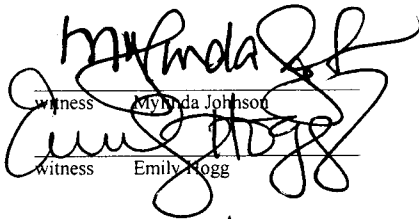 Mylinda
witness Mylinda Johnson
Emily Hogg
witness Emily Hogg